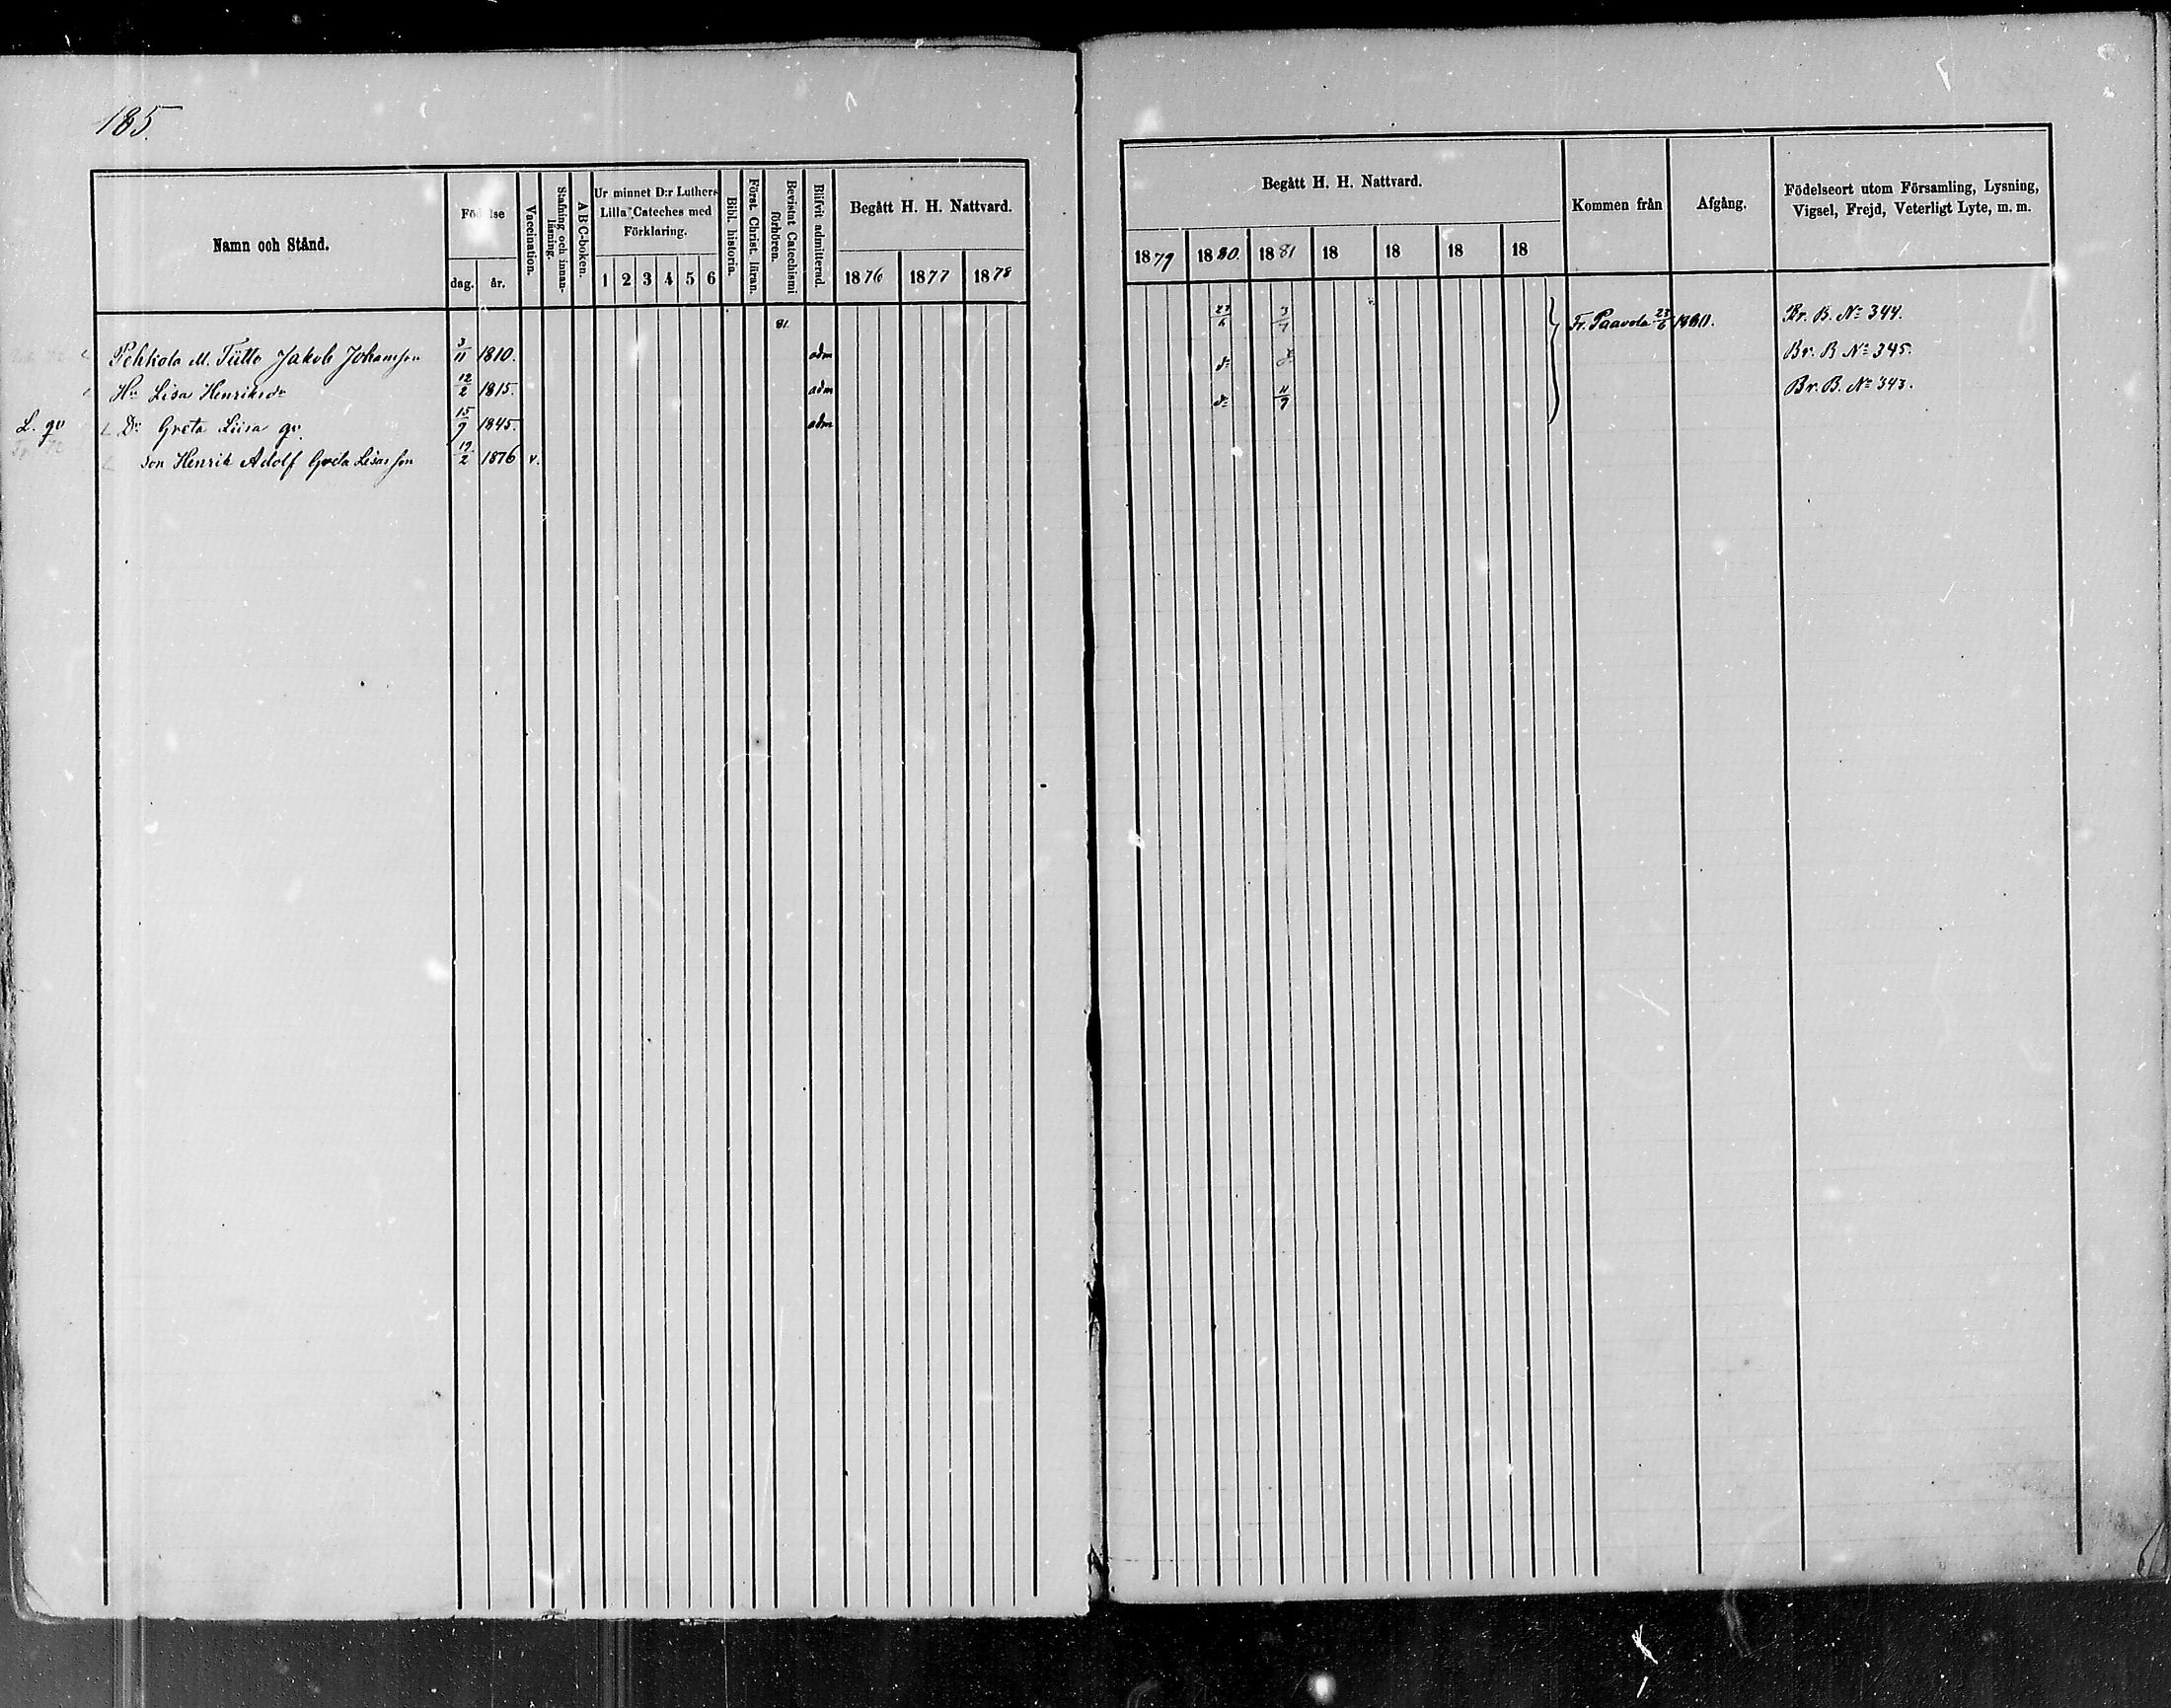 185.
Namn och Stånd.
Födelse
dag. år.
Vaccination.
Stafning och innanläsning.
ABC-boken.
Ur minnet D:r Luthers
Lilla Cateches med
Förklaring.
1 2 3 4 5 6
Bibl. historia.
Först. Christ. läran.
Bevistat Catechismi förhören.
Blifvit admitterad.
Begått H. H. Nattvard.
1876 1877 1878
81.
Pehkola M. Tütto Jakob Johansson 3/11 1810. adm
Hu Lisa Henriksdr 12/2 1815. adm
L. qv Dr Greta Liisa qv. 15/9 1845. adm
son Henrik Adolf Greta Lisas son 19/2 1876 v.
Begått H. H. Nattvard.
Kommen från
Afgång.
Födelseort utom Församling, Lysning,
Vigsel, Frejd, Veterligt Lyte, m. m.
1879 1880 1881 18 18 18 18
Fr. Paavola 23/6 1880. Br. B. No 344.
Br. B No 345.
Br. B. No 343.